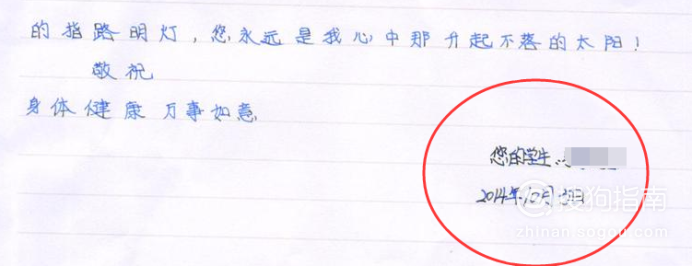 的指路明灯,您永远是我心中那升起不落的太阳!
敬祝
身体健康 万事如意
您的学生:
2014年10月 日
搜狗指南
zhinan.sogou.com